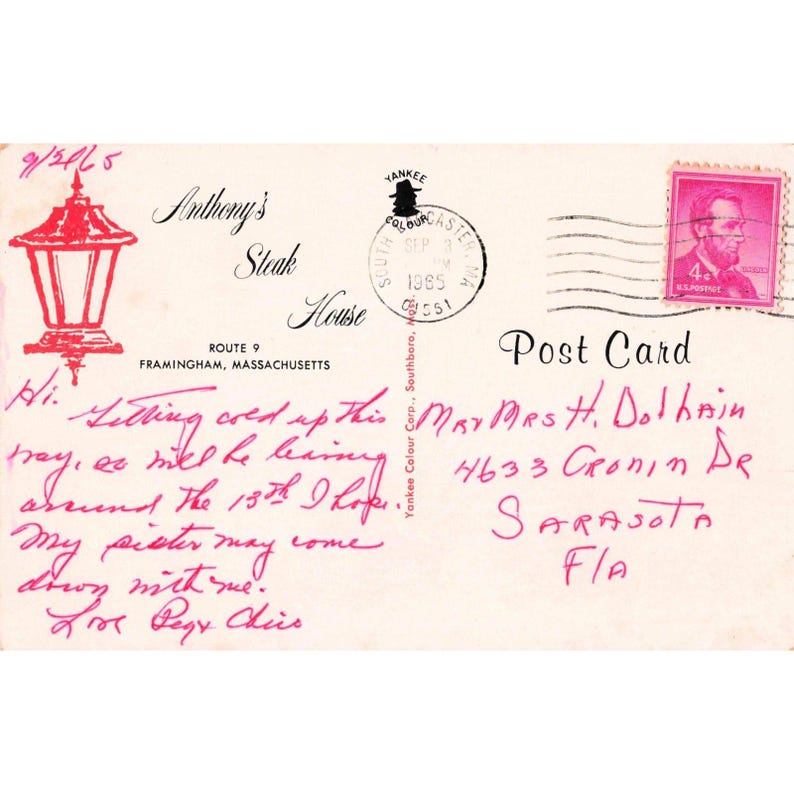 9/2/65
Anthony's
Steak
House
ROUTE 9
FRAMINGHAM, MASSACHUSETTS
Hi.
Getting cold up this
way, so will be leaving
around the 13th I hope.
My sister may come
down with me.
Love Peg x Chico
YANKEE
COLOUR
SOUTH LANCASTER, MA
SEP 3
PM
1965
01551
Yankee Colour Corp., Southboro, Mass.
4¢
LINCOLN
U.S. POSTAGE
Post Card
Mr x Mrs H. Dolhain
4633 Cronin Dr
Sarasota
Fla